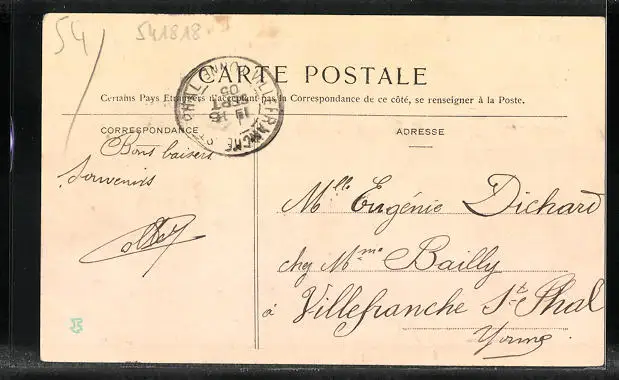 54
541818
CARTE POSTALE
Certains Pays Etrangers n'acceptent pas la Correspondance de ce côté, se renseigner à la Poste.
CORRESPONDANCE
Bons baisers
Souvenirs
ADRESSE
Mlle Eugénie Dichard
chez Mme Bailly
à Villefranche St Phal
Yonne
VILLEFRANCHE ST PHAL YONNE
SEPT
05